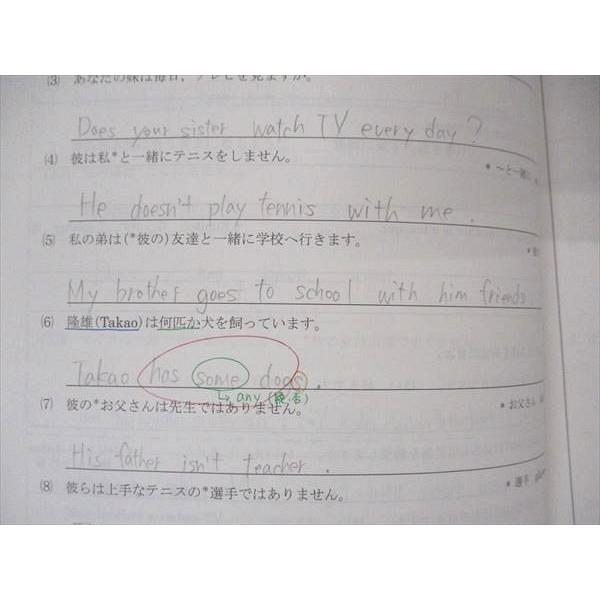 (3) あなたの妹は毎日，テレビを見ますか。
Does your sister watch TV every day?
(4) 彼は私*と一緒にテニスをしません。
*～と一緒に
He doesn't play tennis with me.
(5) 私の弟は(*彼の)友達と一緒に学校へ行きます。
My brother goes to school with him friends
(6) 隆雄(Takao)は何匹か犬を飼っています。
Takao has some dogs.
→ any (疑.否)
(7) 彼の*お父さんは先生ではありません。
*お父さん
His father isn't teacher.
(8) 彼らは上手なテニスの*選手ではありません。
*選手